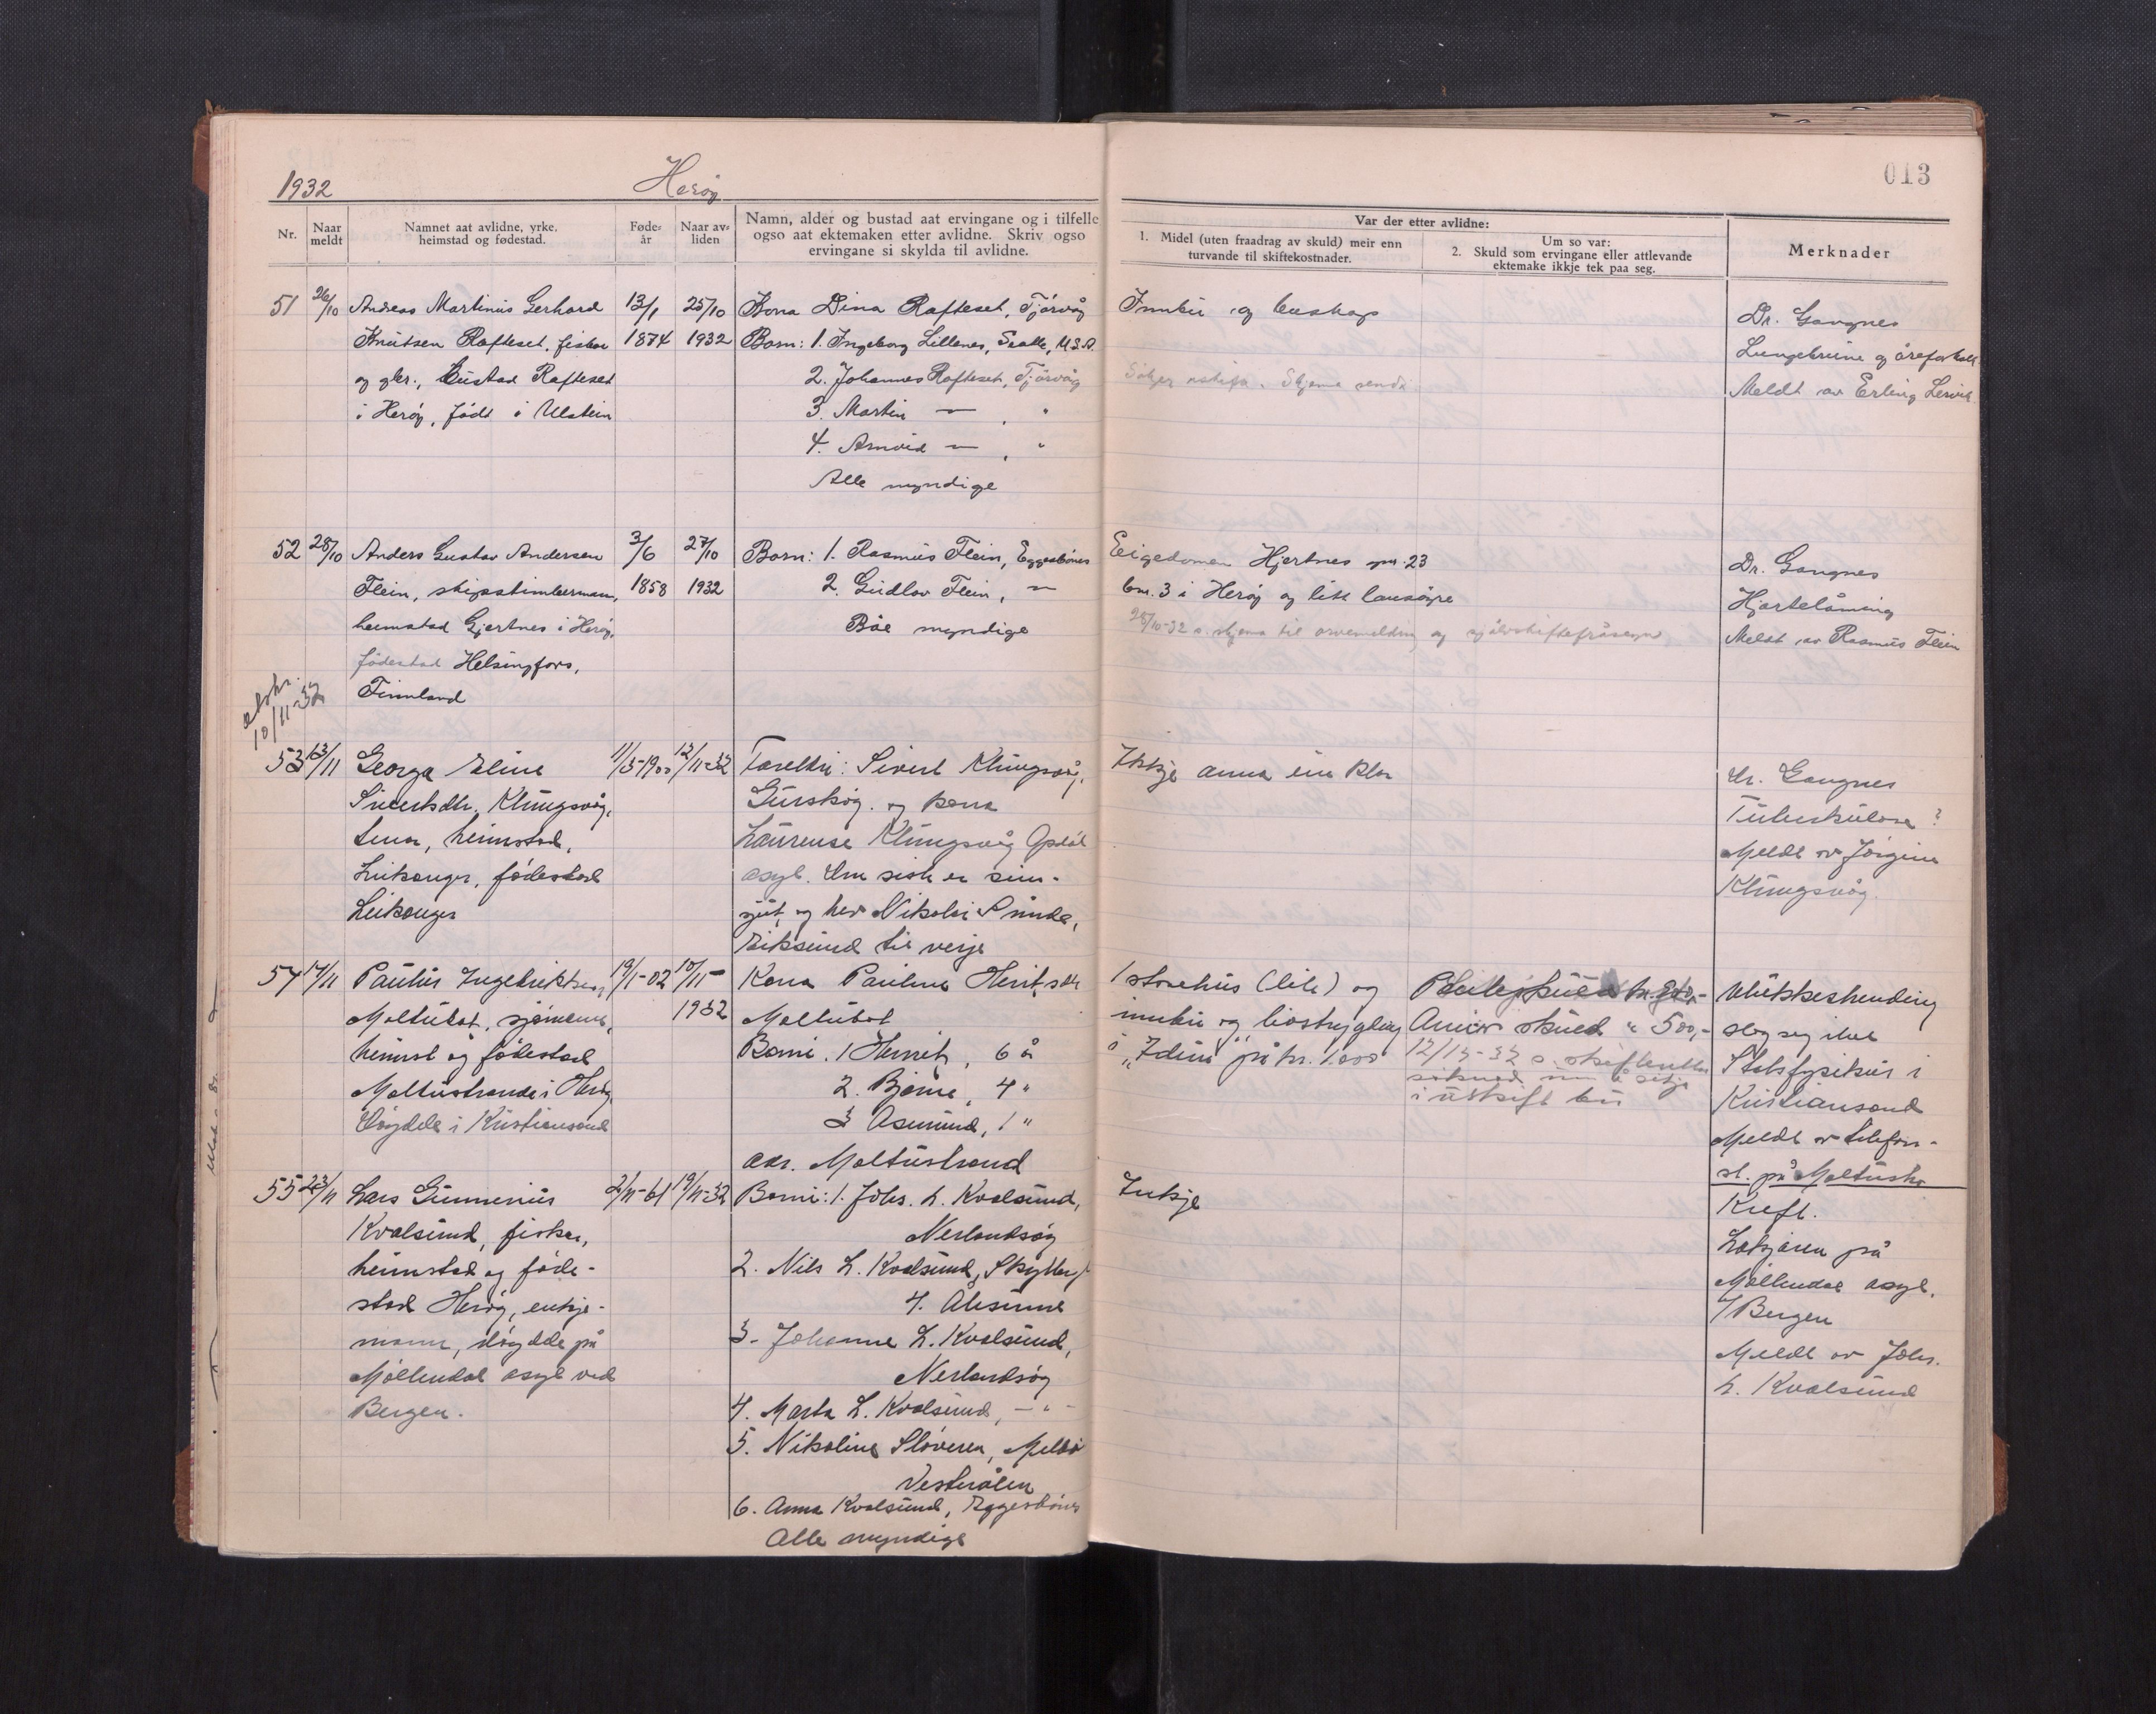 1932
Herøy
013
Nr.
Naar
meldt
Namnet aat avlidne, yrke,
heimstad og fødestad.
Føde-
år
Naar av-
liden
Namn, alder og bustad aat ervingane og i tilfelle
ogso aat ektemaken etter avlidne. Skriv ogso
ervingane si skylda til avlidne.
Var der etter avlidne:
1. Midel (uten fraadrag av skuld) meir enn
turvande til skiftekostnader.
Um so var:
2. Skuld som ervingane eller attlevande
ektemake ikkje tek paa seg.
Merknader
51
26/10
Andreas Martinus Gerhard
Knutsen Rafteset, fiskar
og gbr., bustad Rafteset
i Herøy, født i Ulstein
13/1
1874
25/10
1932
Kona Dina Rafteset, Tjørvåg
Born: 1. Ingeborg Lillenes, Seatle, U.S.A.
2. Johannes Rafteset, Tjørvåg
3. Martin — , "
4. Arnvid — , "
Alle myndige
Innbu og buskap
Dr. Gangnes
og åreforkalk
Meldt av Erling Leivik
52
28/10
Anders Gustav Andersen
Flein, skipstimberman,
heimstad Gjertnes i Herøy,
fødestad Helsingfors,
Finnland
3/6
1858
27/10
1932
Born: 1. Rasmus Flein, Eggesbønes
2. Gudlov Flein, —
Båe myndige
Eigedomen Hjertnes gnr. 23
bnr. 3 i Herøy og litt lausøyre
28/10-32 s. skjema til arvemelding og
Dr. Gangnes
Hjartelåming
Meldt av Rasmus Flein
10/11-32
53
13/11
Georga Eline
Sivertsdtr. Klungsvåg,
tena, heimstad,
Leikanger, fødestad
Leikanger
11/5-1900
12/11-32
Foreldri: Sivert Klungsvåg,
Gurskøy. og kona
Laurense Klungsvåg Opdøl
asyl. Den siste er sinn-
sjuk og hev Nikolai Sunde,
Eiksund til verje
Ikkje anna enn klær
Dr. Gangnes
Tuberkulose ?
Meldt av Jørgine
Klungsvåg.
54
14/11
Paulus Ingebriktsen
Moltubak, sjømann,
heimst. og fødestad
Moltustranda i Herøy,
Døydde i Kristiansand
19/1-02
10/11-
1932
Kona Pauline Henriksdtr
Moltubak
Born: 1 Henrik, 6 år
2. Bjarne, 4 "
3 Asmund, 1 "
adr. Moltustrand
1 stovehus (lite) og
innbu og livstrygding
i "Idun" på kr. 1000
Annor skuld " 500,-
Ulukkeshending
slog seg ihel
Statsfysikus i
Kristiansand
Meldt av telefon-
st. på Moltustr.
55
23/11
Lars Gunnerius
Kvalsund, fiskar,
heimstad og føde-
stad Herøy, enkje-
mann, døydde på
Møllendal asyl ved
Bergen.
2/11-61
19/11-32
Born: 1. Johs. L. Kvalsund,
Nerlandsøy
2. Nils L. Kvalsund,
Ålesund
3. Johanne L. Kvalsund,
Nerlandsøy
4. Marta L. Kvalsund, — " —
5. Nikoline Sløveren, Melbø
Vesterålen
6. Anna Kvalsund, Eggesbønes
Alle myndige
Inkje
Kreft.
Lækjaren på
Møllendal asyl,
v/Bergen
Meldt av Johs.
L. Kvalsund